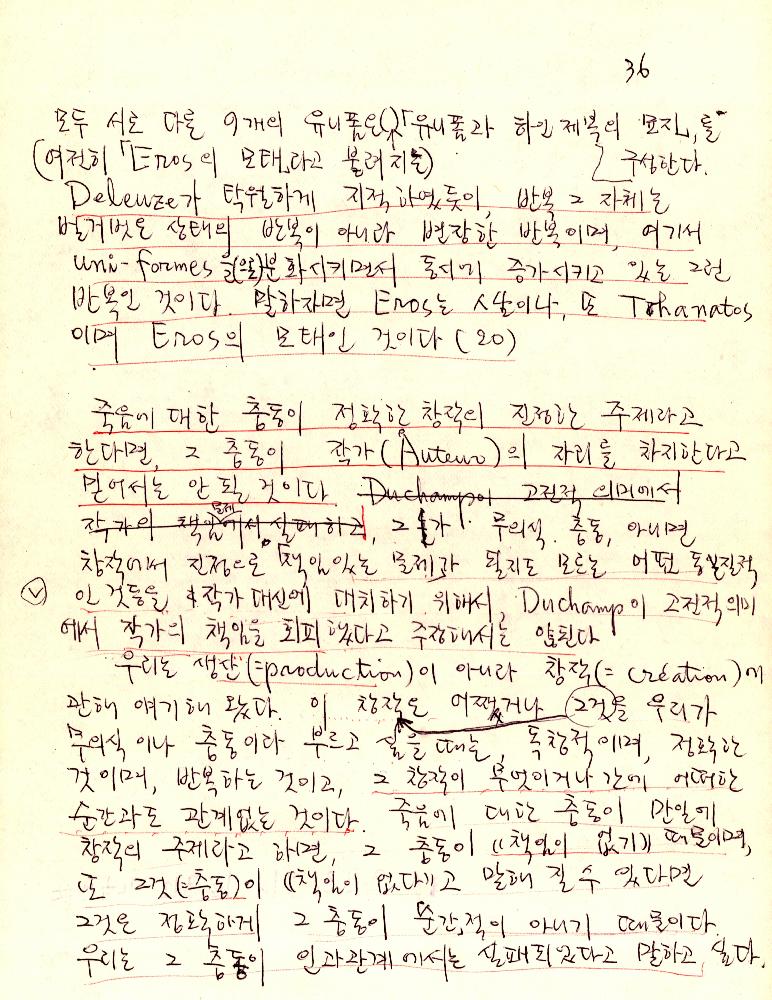 36
모두 서로 다른 9개의 유니폼은(X)「유니폼과 하인 제복의 묘지」를
(여전히 「Eros의 모태」라고 불려지는) 구성한다.
Deleuze가 탁월하게 지적하였듯이, 반복 그 자체는
벌거벗은 상태의 반복이 아니라 변장한 반복이며, 여기서
uni-formes을(으로)분화시키면서 동시에 증가시키고 있는 그런
반복인 것이다. 말하자면 Eros는 시살이나, 또 Tohanatos
이며 Eros의 모태인 것이다 (20)
죽음에 대한 충동이 정확한 창작의 진정한 주제라고
한다면, 그 충동이 작가(Auteur)의 자리를 차지한다고
믿어서는 안 될 것이다 Duchamp이 고전적 의미에서
작가의 책임문제에서 실패하고, 그가 무의식. 충동, 아니면
창작에서 진정으로 「책임있는 물체」과 될지도 모르는 어떤 동일질적
인 것들을 작가 대신에 대치하기 위해서, Duchamp이 고전적 의미
에서 작가의 책임을 회피했다고 주장해서는 안된다
우리는 생산(=production)이 아니라 창작(=création)에
관해 얘기해 왔다. 이 창작은 어쨌거나 그것을 우리가
무의식 이나 충동이라 부르고 싶을 때는, 독창적이며, 정확한
것이며, 반복하는 것이고, 그 창작이 무엇이거나 간에 어떠한
순간과도 관계없는 것이다. 죽음에 대한 충동이 만일에
창작의 주제라고 하면, 그 충동이 《책임이 없기》 때문이며,
또 그것(=충동)이 《책임이 없다》고 말해 질 수 있다면
그것은 정확하게 그 충동이 순간적이 아니기 때문이다.
우리는 그 충동이 인과관계에서는 실패되었다고 말하고 싶다.